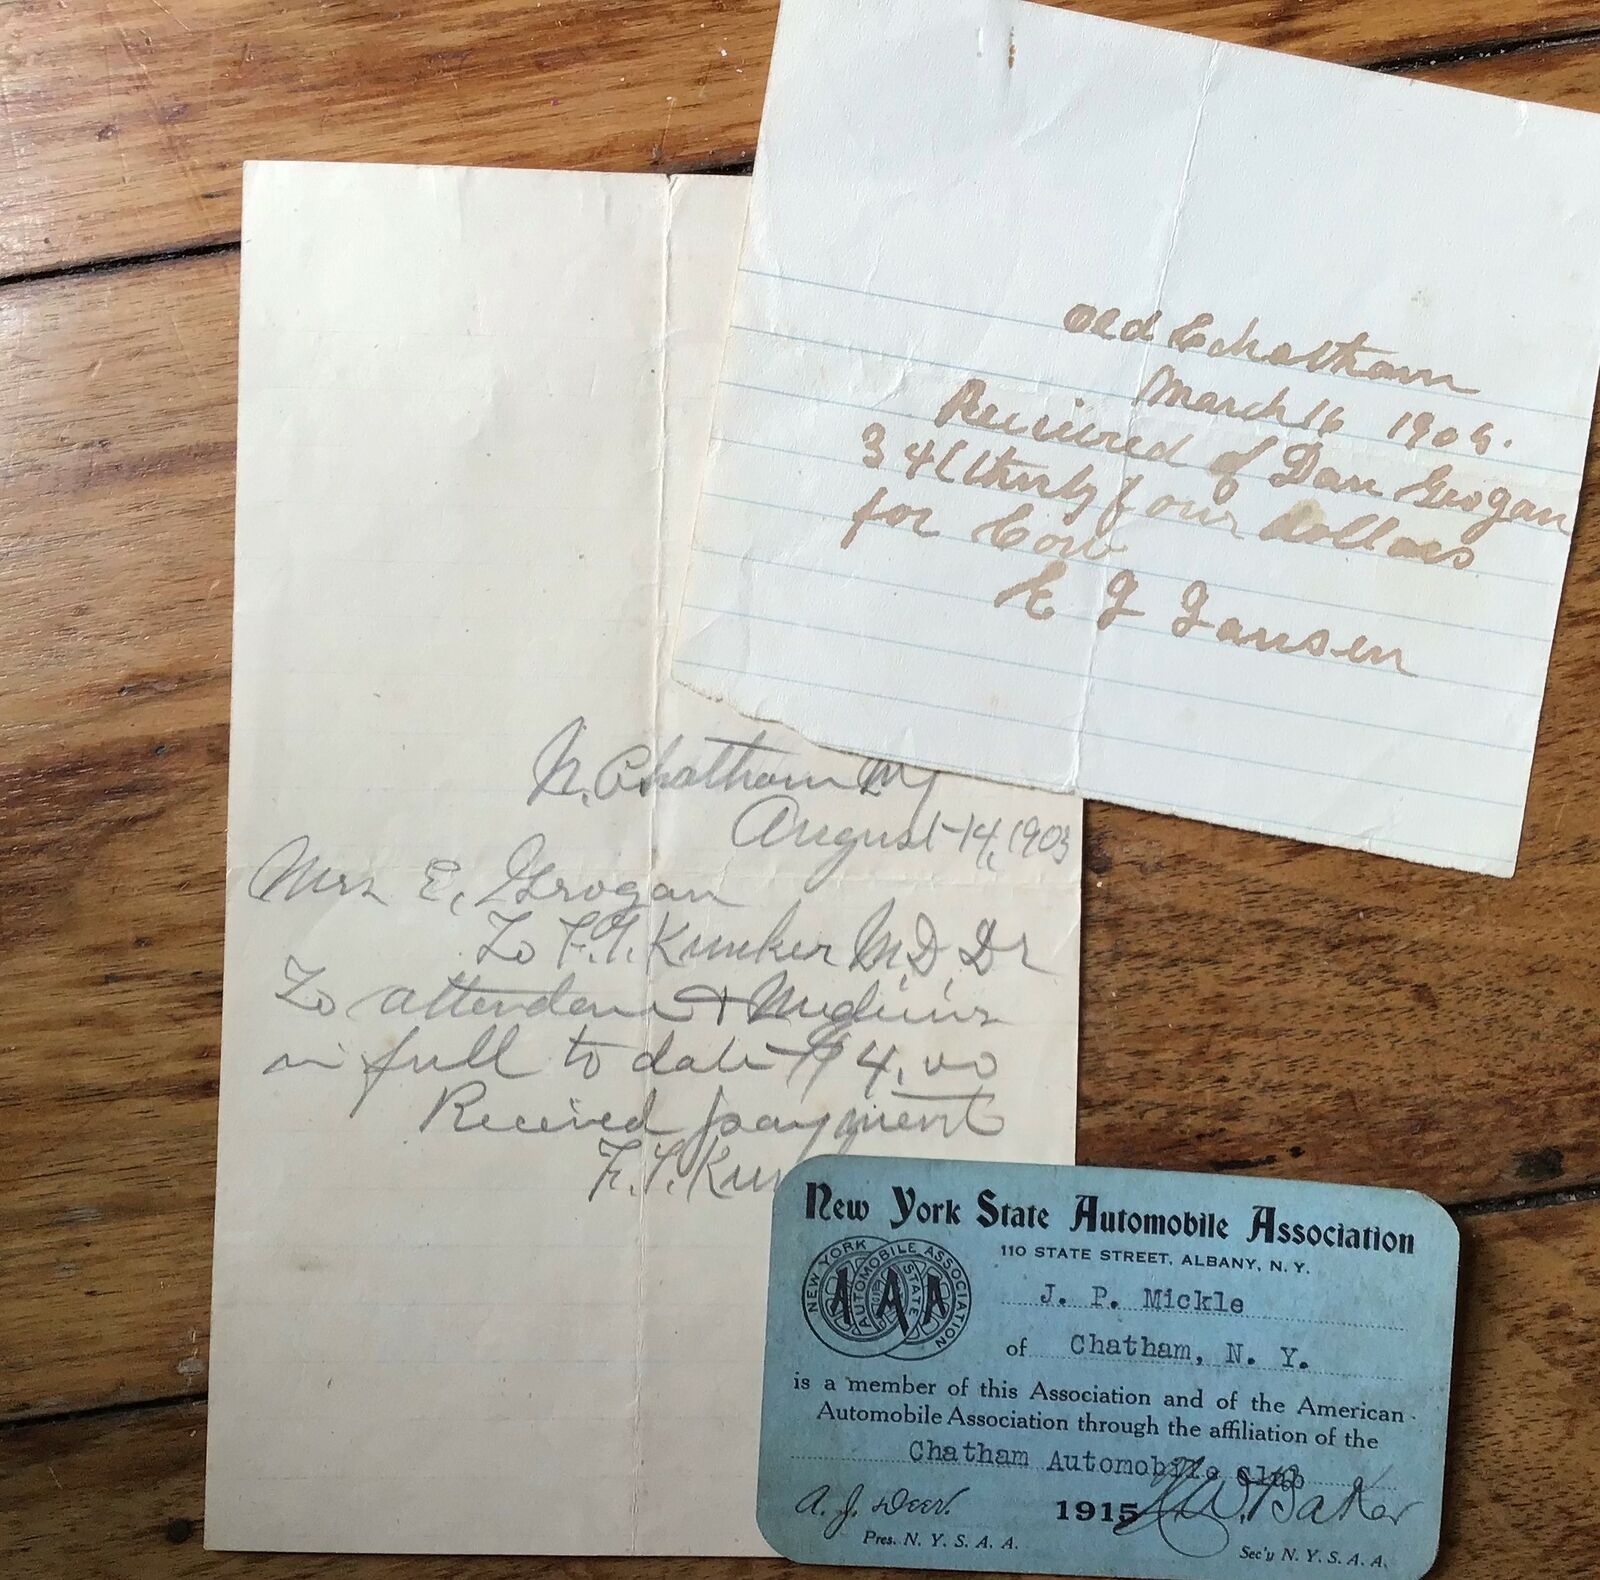 Old Chatham
March 16 1906.
Received of Dan Grogan
34 (thirty four dollars
for Cow
E J Jansen
N. Chatham NY
August 14, 1903
Mrs E, Grogan
To F. T. Kunker M.D. Dr
To attendance + Medicine
in full to date $4.00
Received payment
F. T. Kun
New York State Automobile Association
110 STATE STREET, ALBANY, N. Y.
NEW YORK STATE AUTOMOBILE ASSOCIATION
AAA
J. P. Mickle
of Chatham, N. Y.
is a member of this Association and of the American
Automobile Association through the affiliation of the
Chatham Automobile Club
A. J. Deer. 1915 H. W. Baker
Pres. N. Y. S. A. A. Sec'y N. Y. S. A. A.